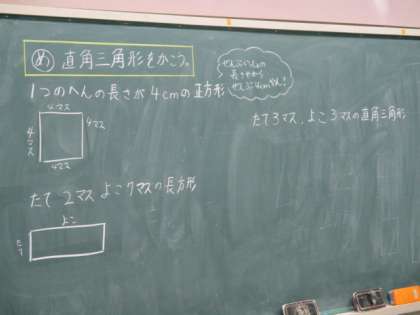 め 直角三角形をかこう。
ぜんぶいっしょの
長さだから
ぜんぶ4cmやん!
1つのへんの長さが4cmの正方形
4マス
4マス
4マス
4マス
たて2マス よこ7マスの長方形
よこ
たて
たて3マス、よこ3マスの直角三角形